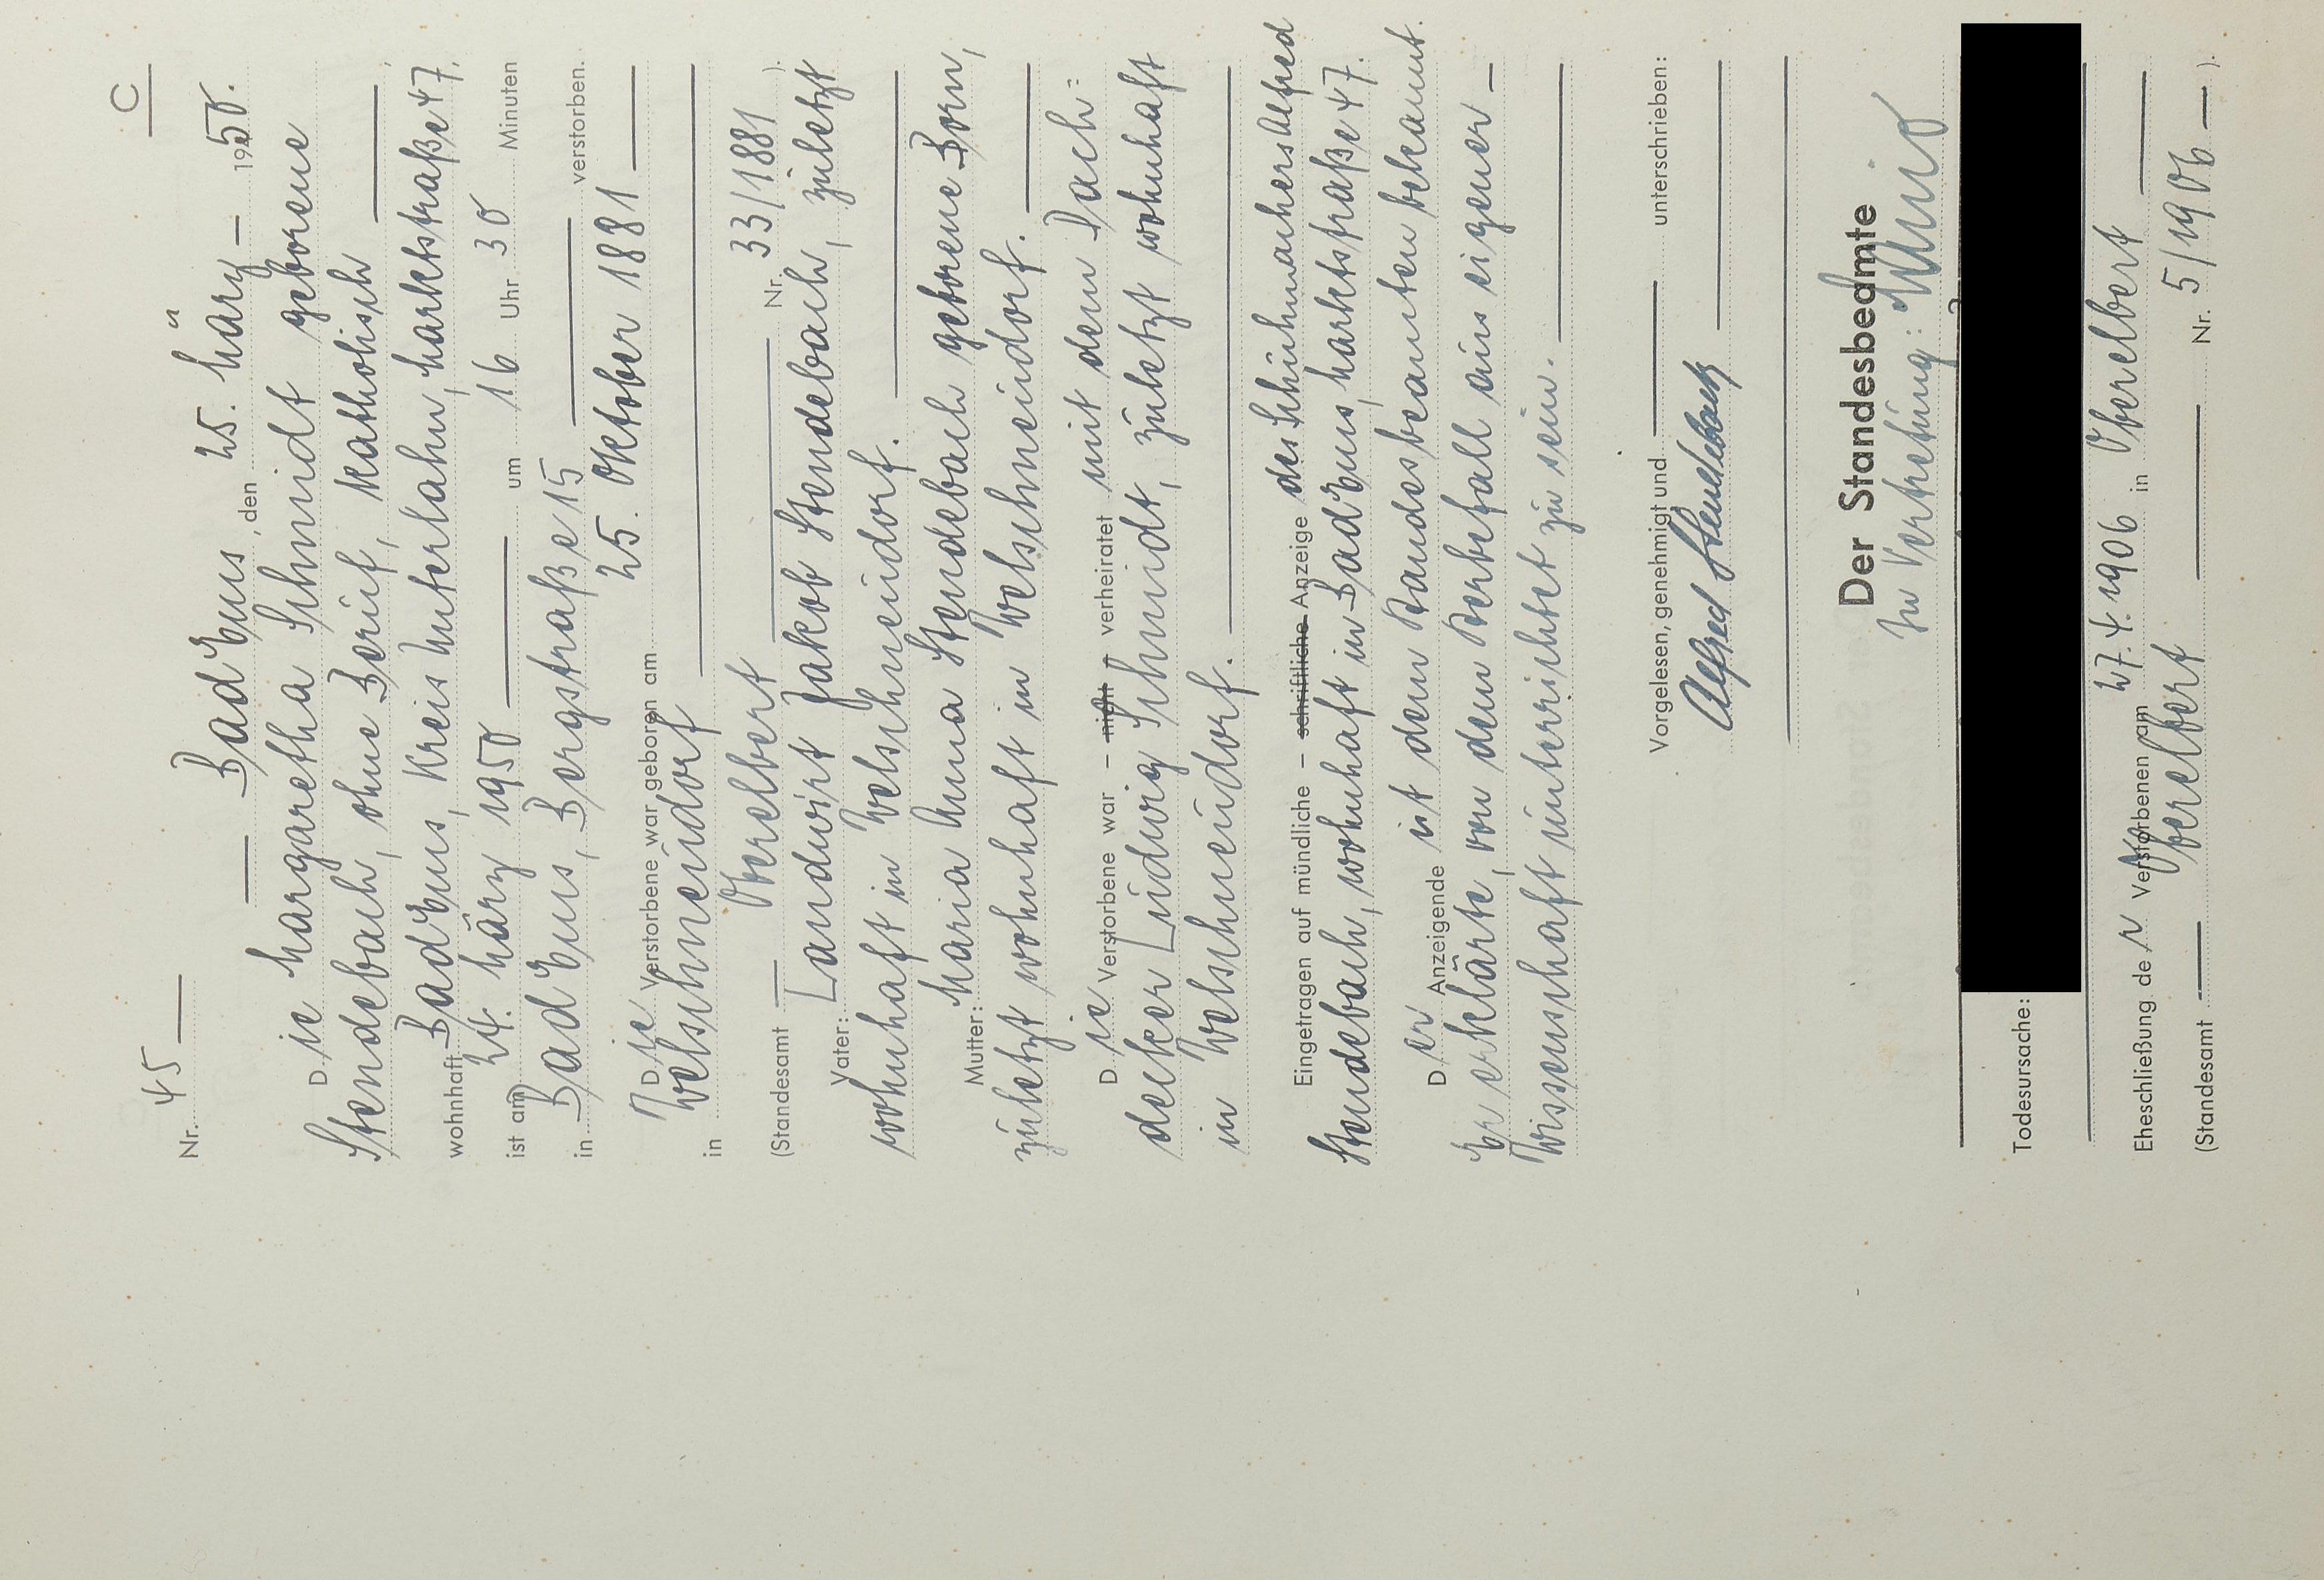 C
Nr. 45
Bad Ems, den 25. März 1950.
Die Margaretha Schmidt geborene
Stendebach, ohne Beruf, katholisch
wohnhaft Bad Ems, Kreis Unterlahn, Marktstraße 47,
ist am 24. März 1950 um 16 Uhr 30 Minuten
in Bad Ems, Bergstraße 15 verstorben.
Die Verstorbene war geboren am 25. Oktober 1881
in Welschneudorf
(Standesamt Oberelbert Nr. 33/1881 ).
Vater: Landwirt Jakob Stendebach, zuletzt
wohnhaft in Welschneudorf.
Mutter: Maria Anna Stendebach geborene Born,
zuletzt wohnhaft in Welschneudorf.
Die Verstorbene war – nicht verheiratet mit dem Dach=
decker Ludwig Schmidt, zuletzt wohnhaft
in Welschneudorf.
Eingetragen auf mündliche – schriftliche Anzeige des Schuhmachers Alfred
Stendebach, wohnhaft in Bad Ems, Marktstraße 47.
Der Anzeigende ist dem Standesbeamten bekannt.
Er erklärte, von dem Sterbefall aus eigener
Wissenschaft unterrichtet zu sein.
Vorgelesen, genehmigt und unterschrieben:
Alfred Stendebach
Der Standesbeamte
In Vertretung:
Todesursache:
Eheschließung der Verstorbenen am 27.4.1906 in Oberelbert
(Standesamt Oberelbert Nr. 5/1906 ).